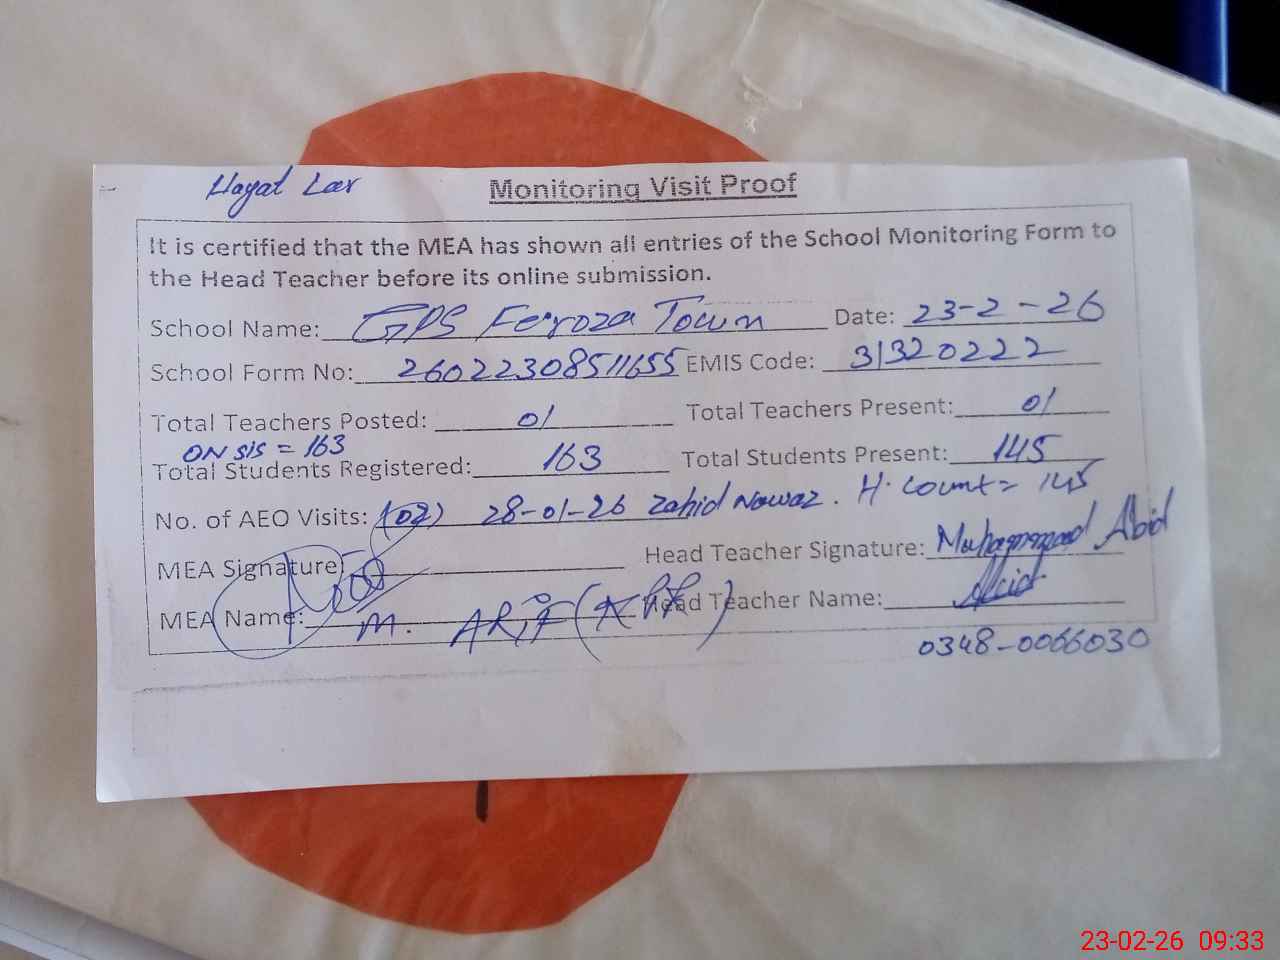 Hayat Lar
Monitoring Visit Proof
It is certified that the MEA has shown all entries of the School Monitoring Form to
the Head Teacher before its online submission.
School Name: GPS Feroza Town Date: 23-2-26
School Form No: 26022308511655 EMIS Code: 31320222
Total Teachers Posted: 01 Total Teachers Present: 01
ON SIS = 163
Total Students Registered: 163 Total Students Present: 145
No. of AEO Visits: (02) 28-01-26 Zahid Nawaz. H. Count = 145
MEA Signature: Head Teacher Signature: Muhammad Abid
MEA Name: M. ARIF Head Teacher Name: Abid
0348-0066030
23-02-26 09:33